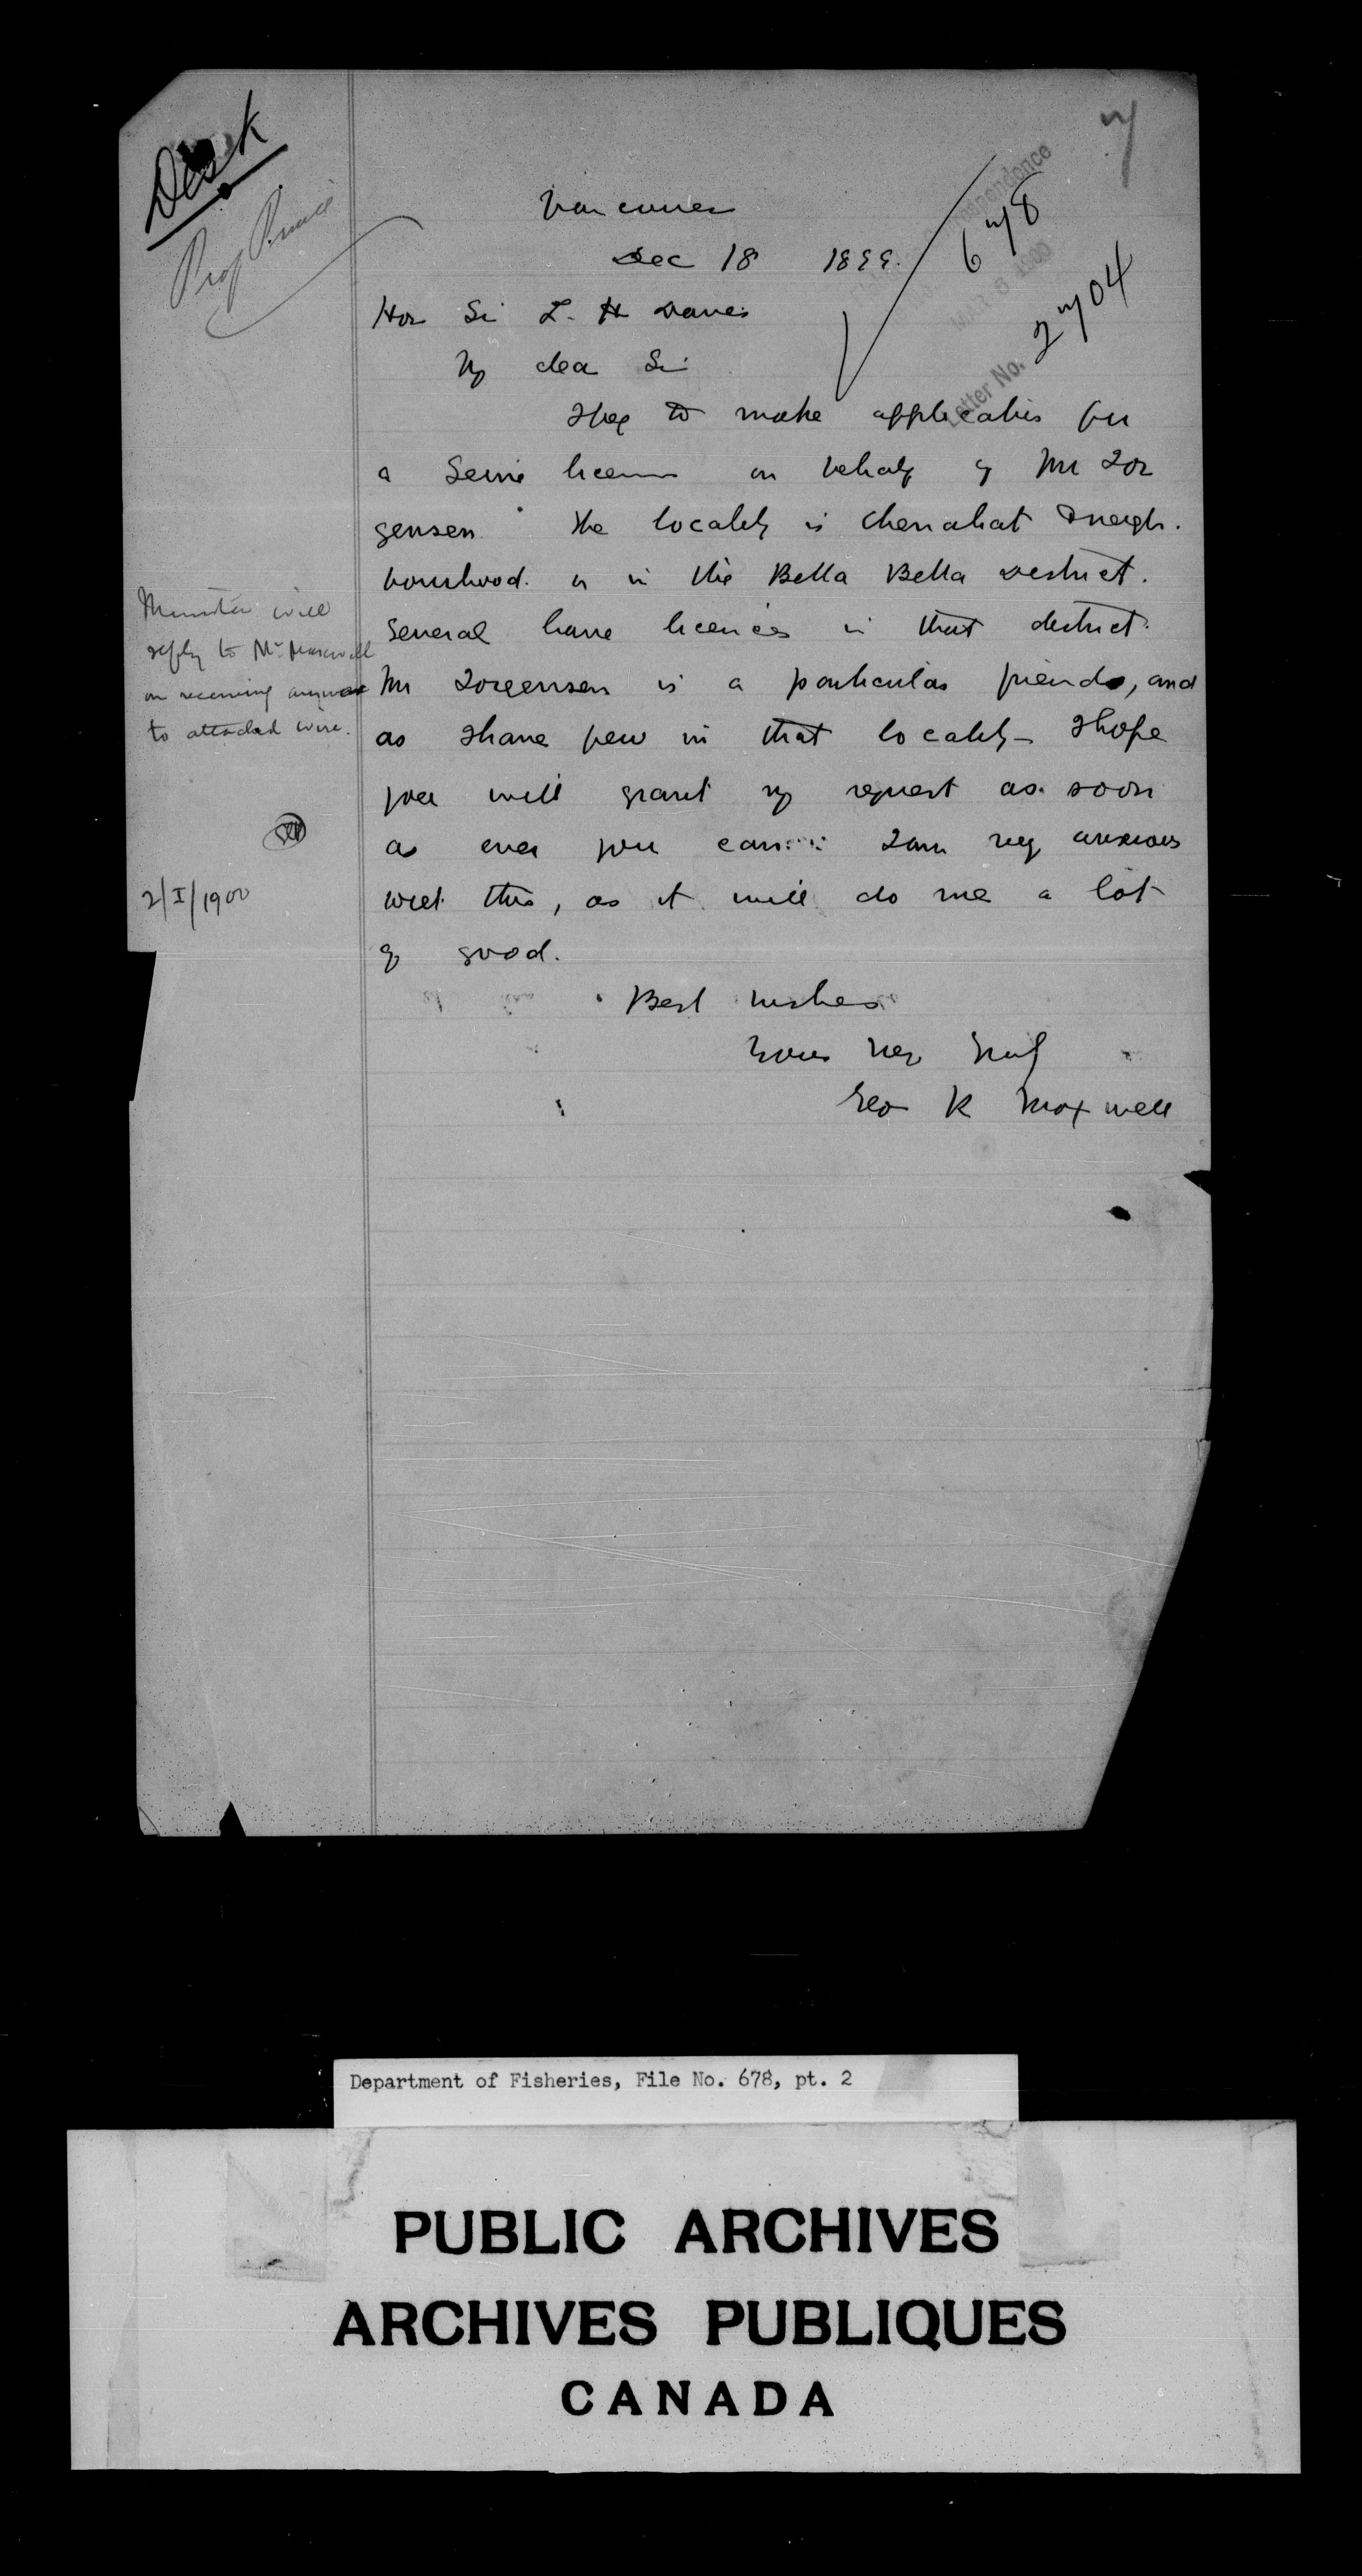 Desk
Prof Prince
7
Correspondence
MAR 6 1900
678
Letter No. 2704
Vancouver
Dec 18 1899.
Hon Sir L. H Davies
My dear Sir
I beg to make application for
a Seine license on behalf of Mr Jor
gensen. The locality is & neigh.
bourhood. is in the Bella Bella District.
Several have licences in that district.
Mr Jorgensen is a particular friend, and
as I have few in that locality I hope
you will grant my request as soon
as ever you can. I am very anxious
with this, as it will do me a lot
of good.
Best wishes
Yours very truly
Geo R Maxwell
Minister will
reply to Mr Maxwell
on receiving answer
to attached wire.
2/I/1900
Department of Fisheries, File No. 678, pt. 2
PUBLIC ARCHIVES
ARCHIVES PUBLIQUES
CANADA